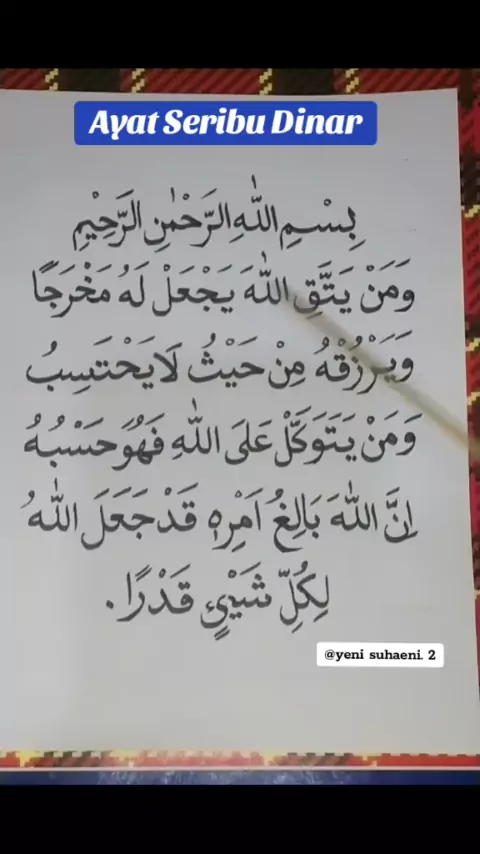 Ayat Seribu Dinar
بِسْمِ اللّٰهِ الرَّحْمٰنِ الرَّحِيْمِ
وَمَنْ يَتَّقِ اللّٰهَ يَجْعَلْ لَهُ مَخْرَجًا
وَيَرْزُقْهُ مِنْ حَيْثُ لَا يَحْتَسِبُ
وَمَنْ يَتَوَكَّلْ عَلَى اللّٰهِ فَهُوَ حَسْبُهُ
اِنَّ اللّٰهَ بَالِغُ اَمْرِهٖ قَدْ جَعَلَ اللّٰهُ
لِكُلِّ شَيْئٍ قَدْرًا.
@yeni suhaeni. 2